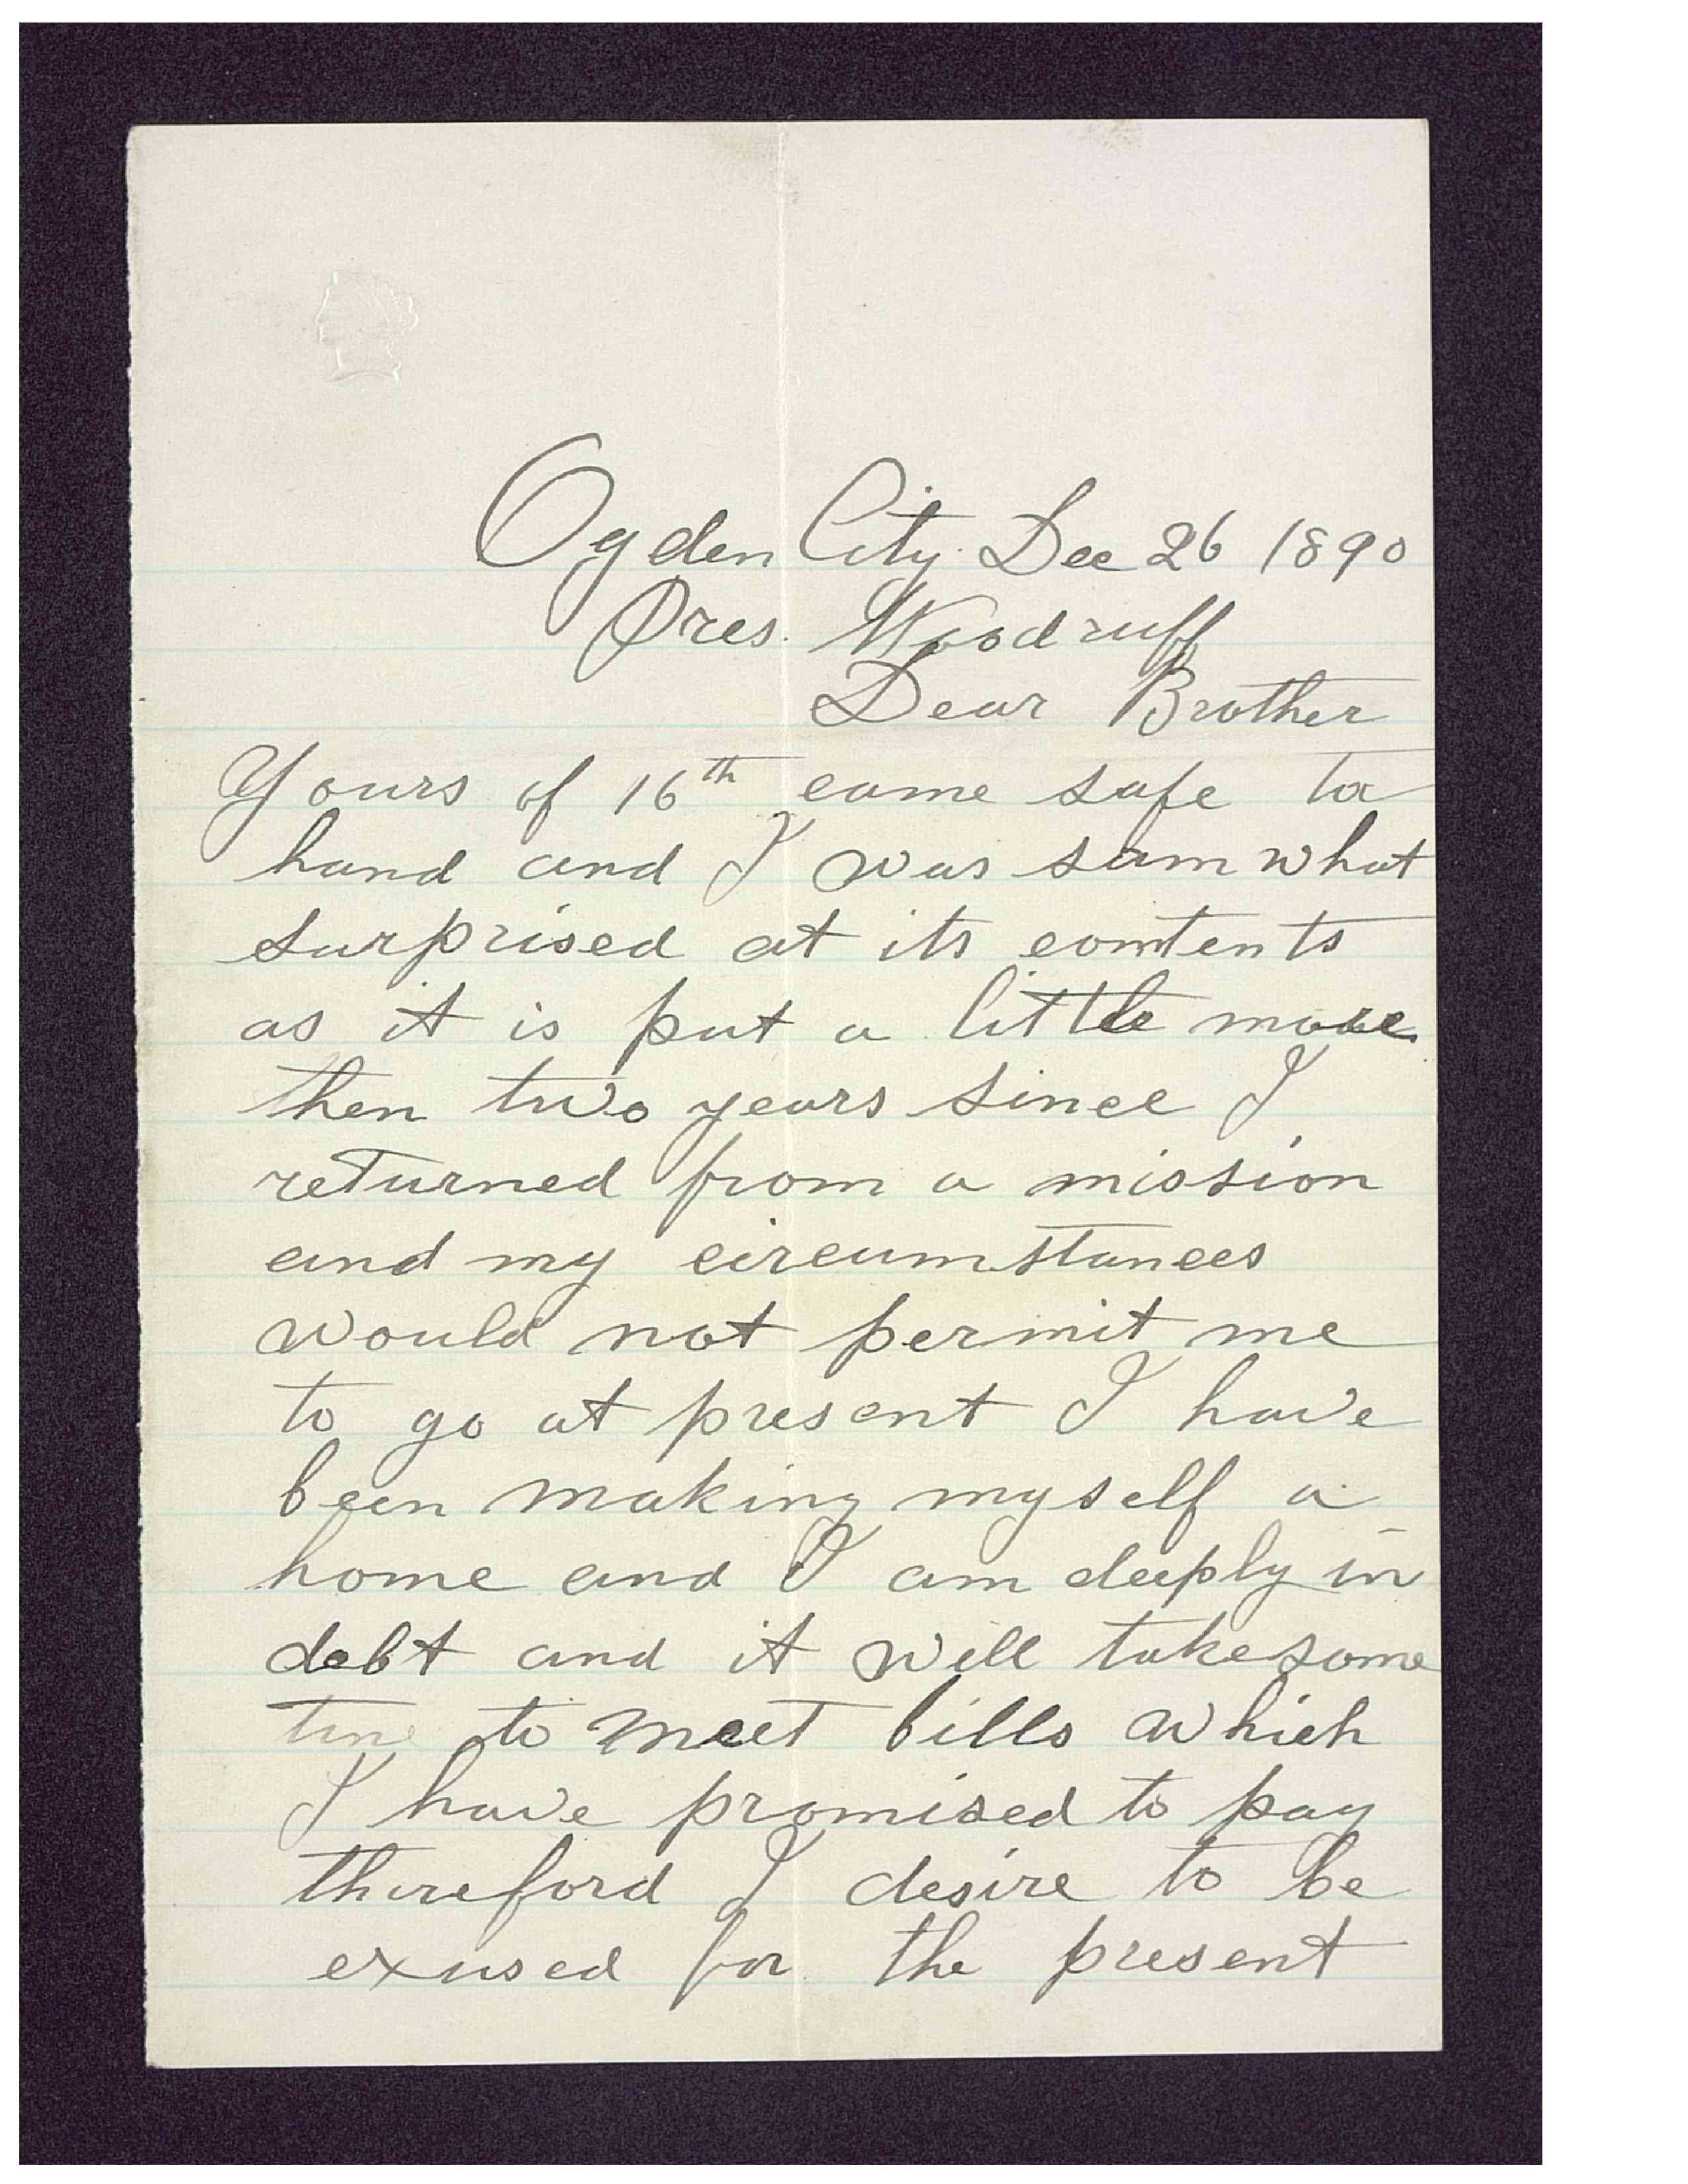 Ogden City Dec 26 1890
Pres. Woodruff
Dear Brother
Yours of 16th came safe to
hand and I was sum what
surprised at its contents
as it is put a little more
then two years since I
returned from a mission
and my circumstances
would not permit me
to go at present I have
been making myself a
home and I am deeply in
debt and it will take some
time to meet bills which
I have promised to pay
thereford I desire to be
exused for the present